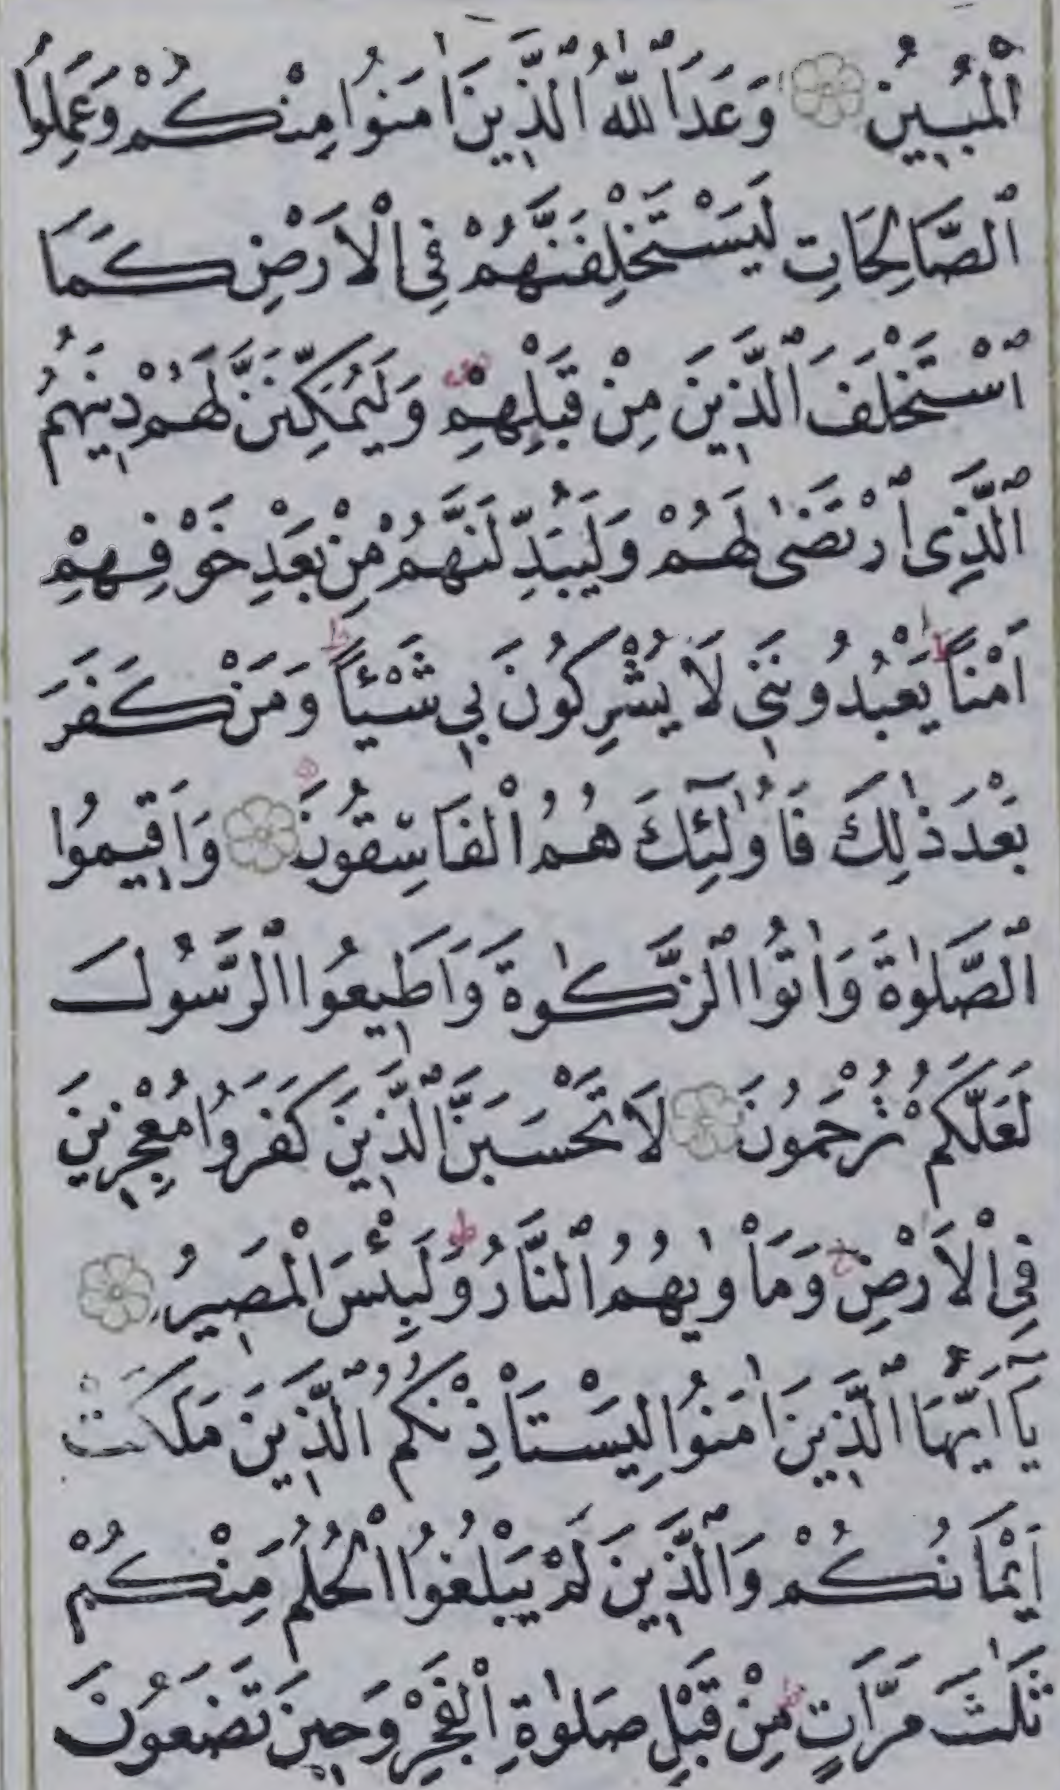 ٱلْمُبِينُ وَعَدَ ٱللّٰهُ ٱلَّذِينَ اٰمَنُوا مِنْكُمْ وَعَمِلُوا
ٱلصَّالِحَاتِ لَيَسْتَخْلِفَنَّهُمْ فِى ٱلْاَرْضِ كَمَا
ٱسْتَخْلَفَ ٱلَّذِينَ مِنْ قَبْلِهِمْ وَلَيُمَكِّنَنَّ لَهُمْ دِينَهُمُ
ٱلَّذِى ٱرْتَضٰى لَهُمْ وَلَيُبَدِّلَنَّهُمْ مِنْ بَعْدِ خَوْفِهِمْ
اَمْنًا ط يَعْبُدُونَنِى لَا يُشْرِكُونَ بِى شَيْئًا ط وَمَنْ كَفَرَ
بَعْدَ ذٰلِكَ فَاُولٰٓئِكَ هُمُ ٱلْفَاسِقُونَ وَاَقِيمُوا
ٱلصَّلٰوةَ وَاٰتُوا ٱلزَّكٰوةَ وَاَطِيعُوا ٱلرَّسُولَ
لَعَلَّكُمْ تُرْحَمُونَ لَا تَحْسَبَنَّ ٱلَّذِينَ كَفَرُوا مُعْجِزِينَ
فِى ٱلْاَرْضِ ج وَمَأْوٰيهُمُ ٱلنَّارُ ط وَلَبِئْسَ ٱلْمَصِيرُ
يَآ اَيُّهَا ٱلَّذِينَ اٰمَنُوا لِيَسْتَأْذِنْكُمُ ٱلَّذِينَ مَلَكَتْ
اَيْمَانُكُمْ وَٱلَّذِينَ لَمْ يَبْلُغُوا ٱلْحُلُمَ مِنْكُمْ
ثَلٰثَ مَرَّاتٍ ط مِنْ قَبْلِ صَلٰوةِ ٱلْفَجْرِ وَحِينَ تَضَعُونَ